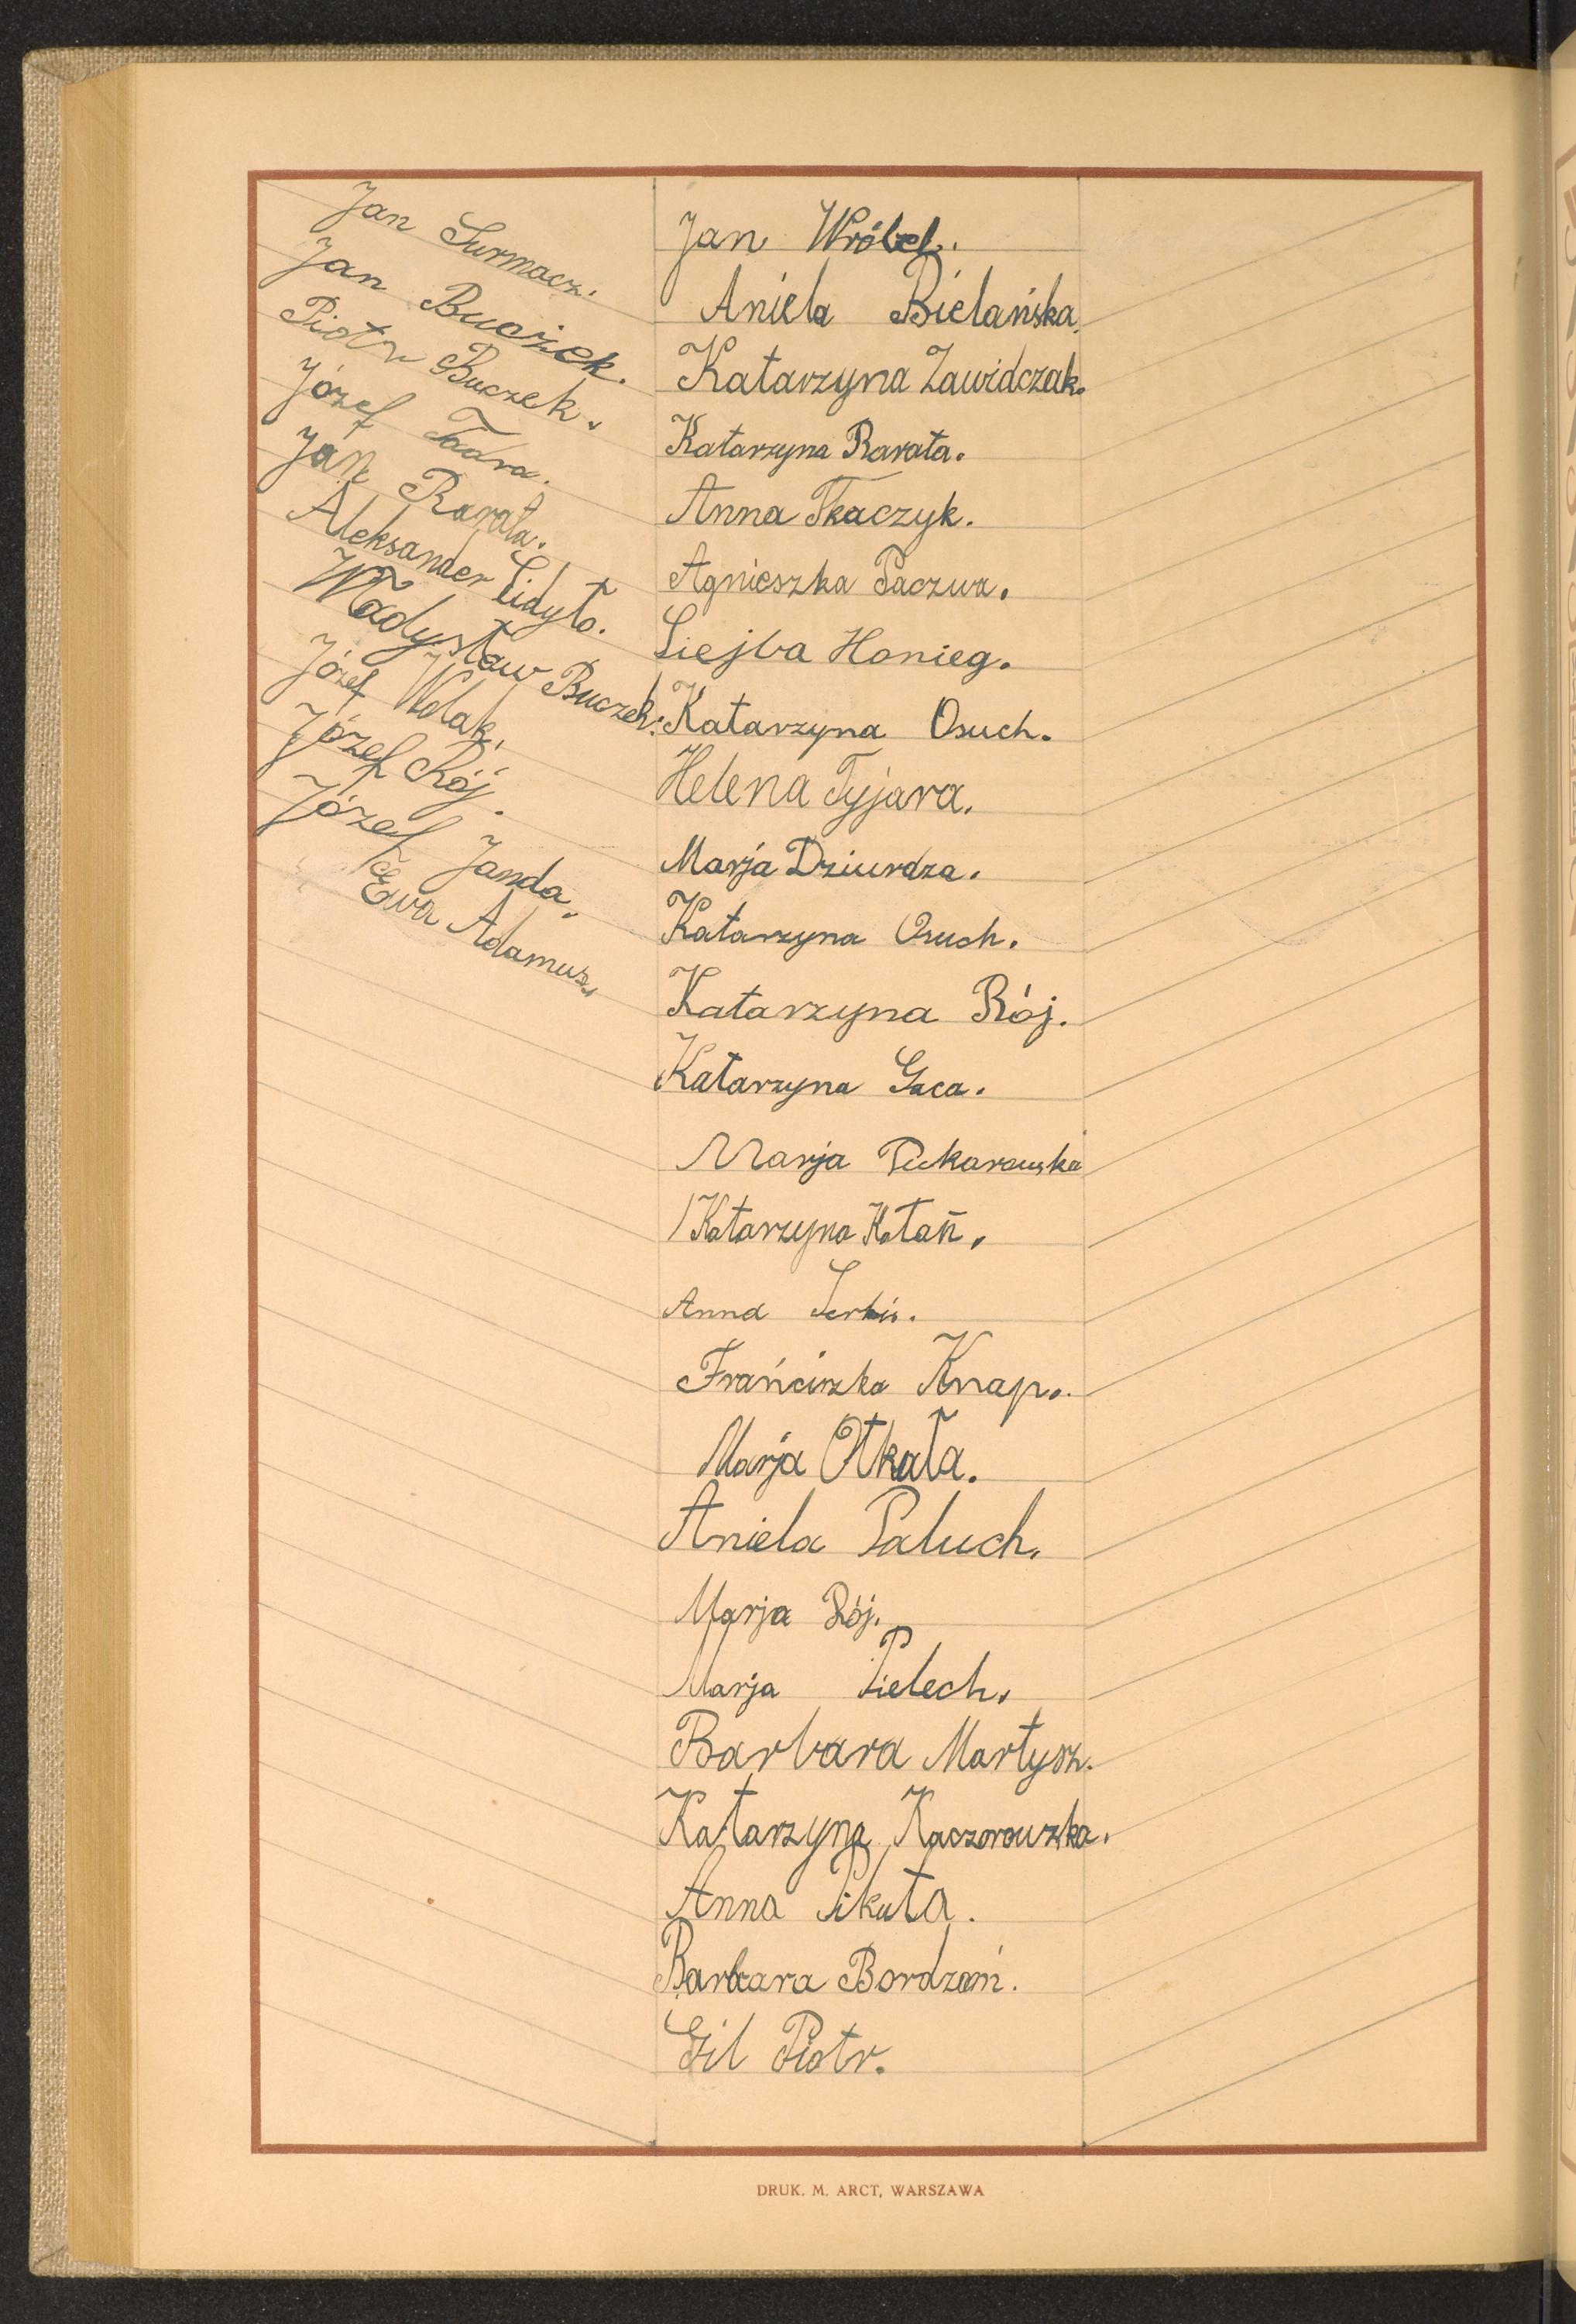 Jan Surmacz.
Jan Buczek.
Piotr Buczek.
Józef Tadra.
Jan Rarata.
Aleksander Lidyło.
Władysław Buczek.
Józef Wolak.
Józef Rój.
Józef Janda.
Ewa Adamusz.
Jan Wróbel.
Aniela Bielańska.
Katarzyna Zawidczak.
Katarzyna Rarata.
Anna Tkaczyk.
Agnieszka Paczwa.
Siejba Honieg.
Katarzyna Osuch.
Helena Tyjara.
Marja Dziurdza.
Katarzyna Osuch.
Katarzyna Rój.
Katarzyna Gaca.
Marja Piekarowska
Katarzyna Kołań.
Anna
Frańciszka Knap.
Marja Otkała.
Aniela Paluch.
Marja Rój.
Marja Pielech.
Barbara Martysz.
Katarzyna Kaczorowzka.
Anna Pikuła.
Barbara Bordzoń.
Gil Piotr.
DRUK. M. ARCT, WARSZAWA